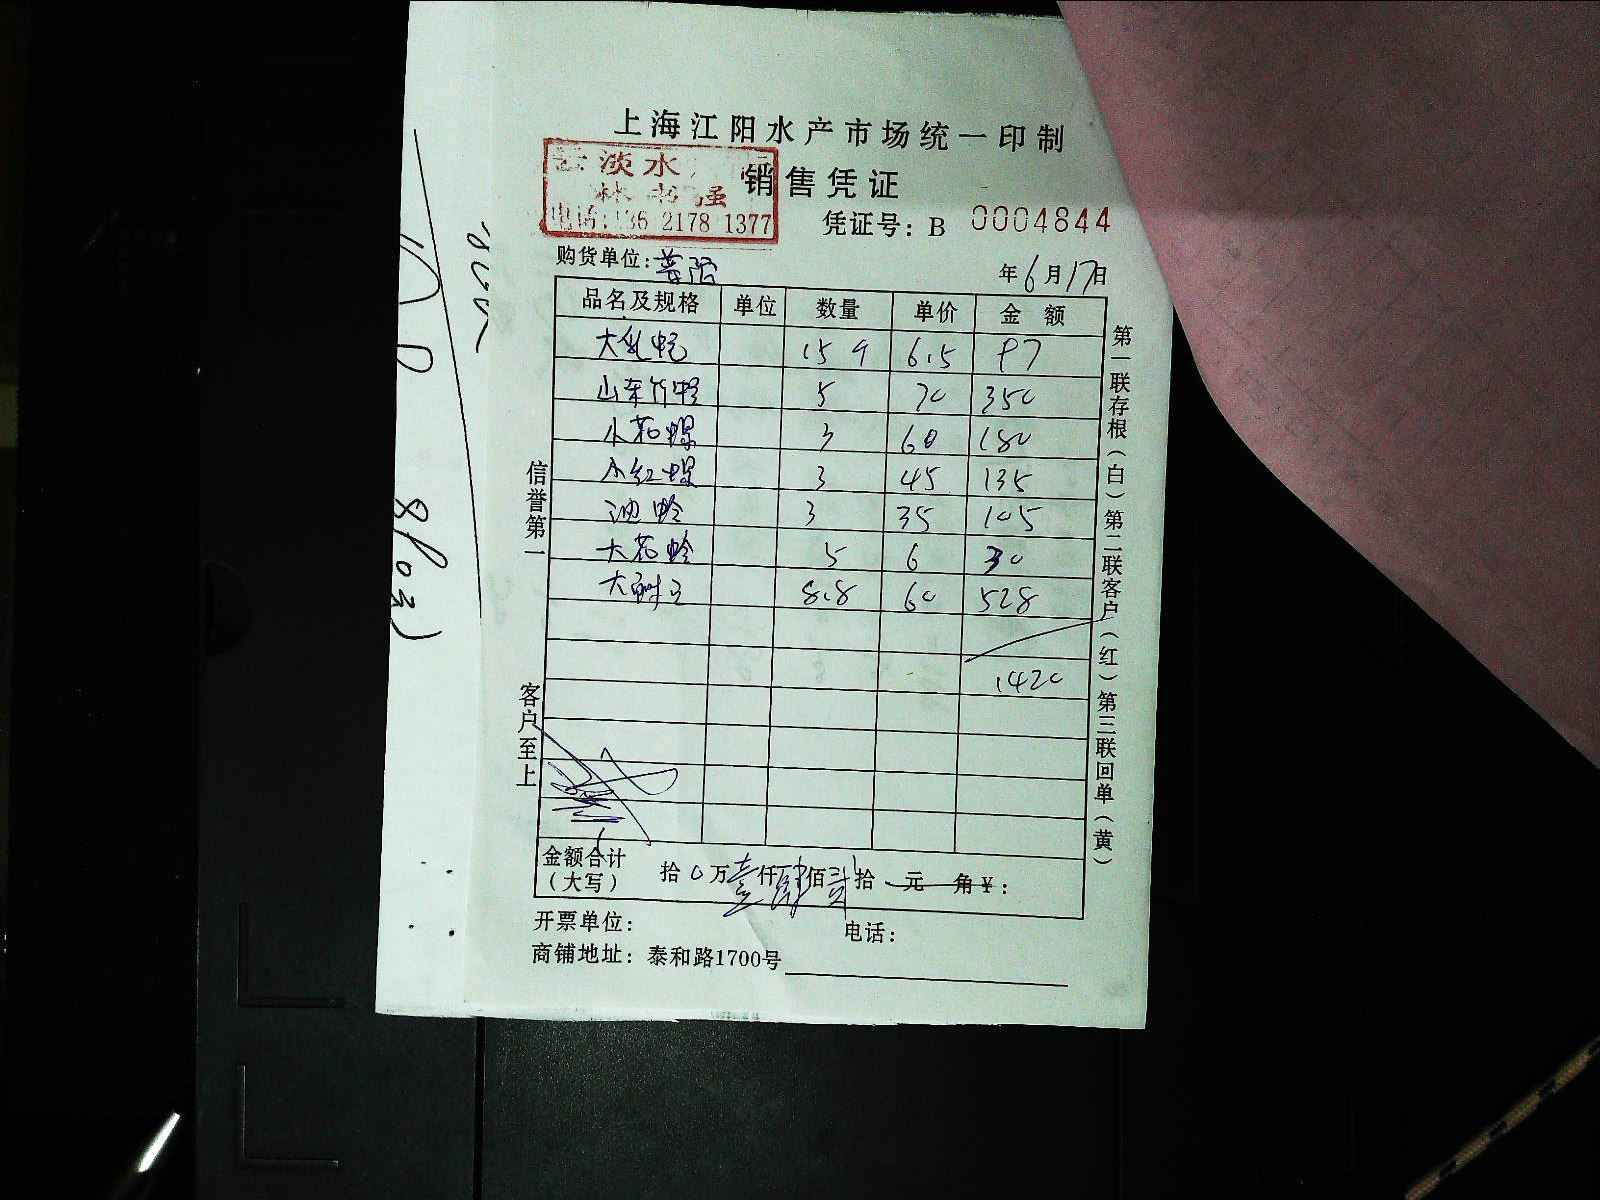 上海江阳水产市场统一印制
销售凭证
淡水
林 强
电话:136 2178 1377
凭证号：B 0004844
购货单位:
年6月17日
品名及规格 单位 数量 单价 金额
大 15 9 6.5 97
山东竹蛏 5 70 350
小花螺 3 60 180
小红螺 3 45 135
蛤 3 35 105
大花蛤 5 6 30
大 8.8 60 528
1420
金额合计
（大写） 拾0万壹仟肆佰贰拾 元 角¥：
开票单位： 电话：
商铺地址：泰和路1700号
信誉第一
客户至上
第一联存根（白）第二联客户（红）第三联回单（黄）